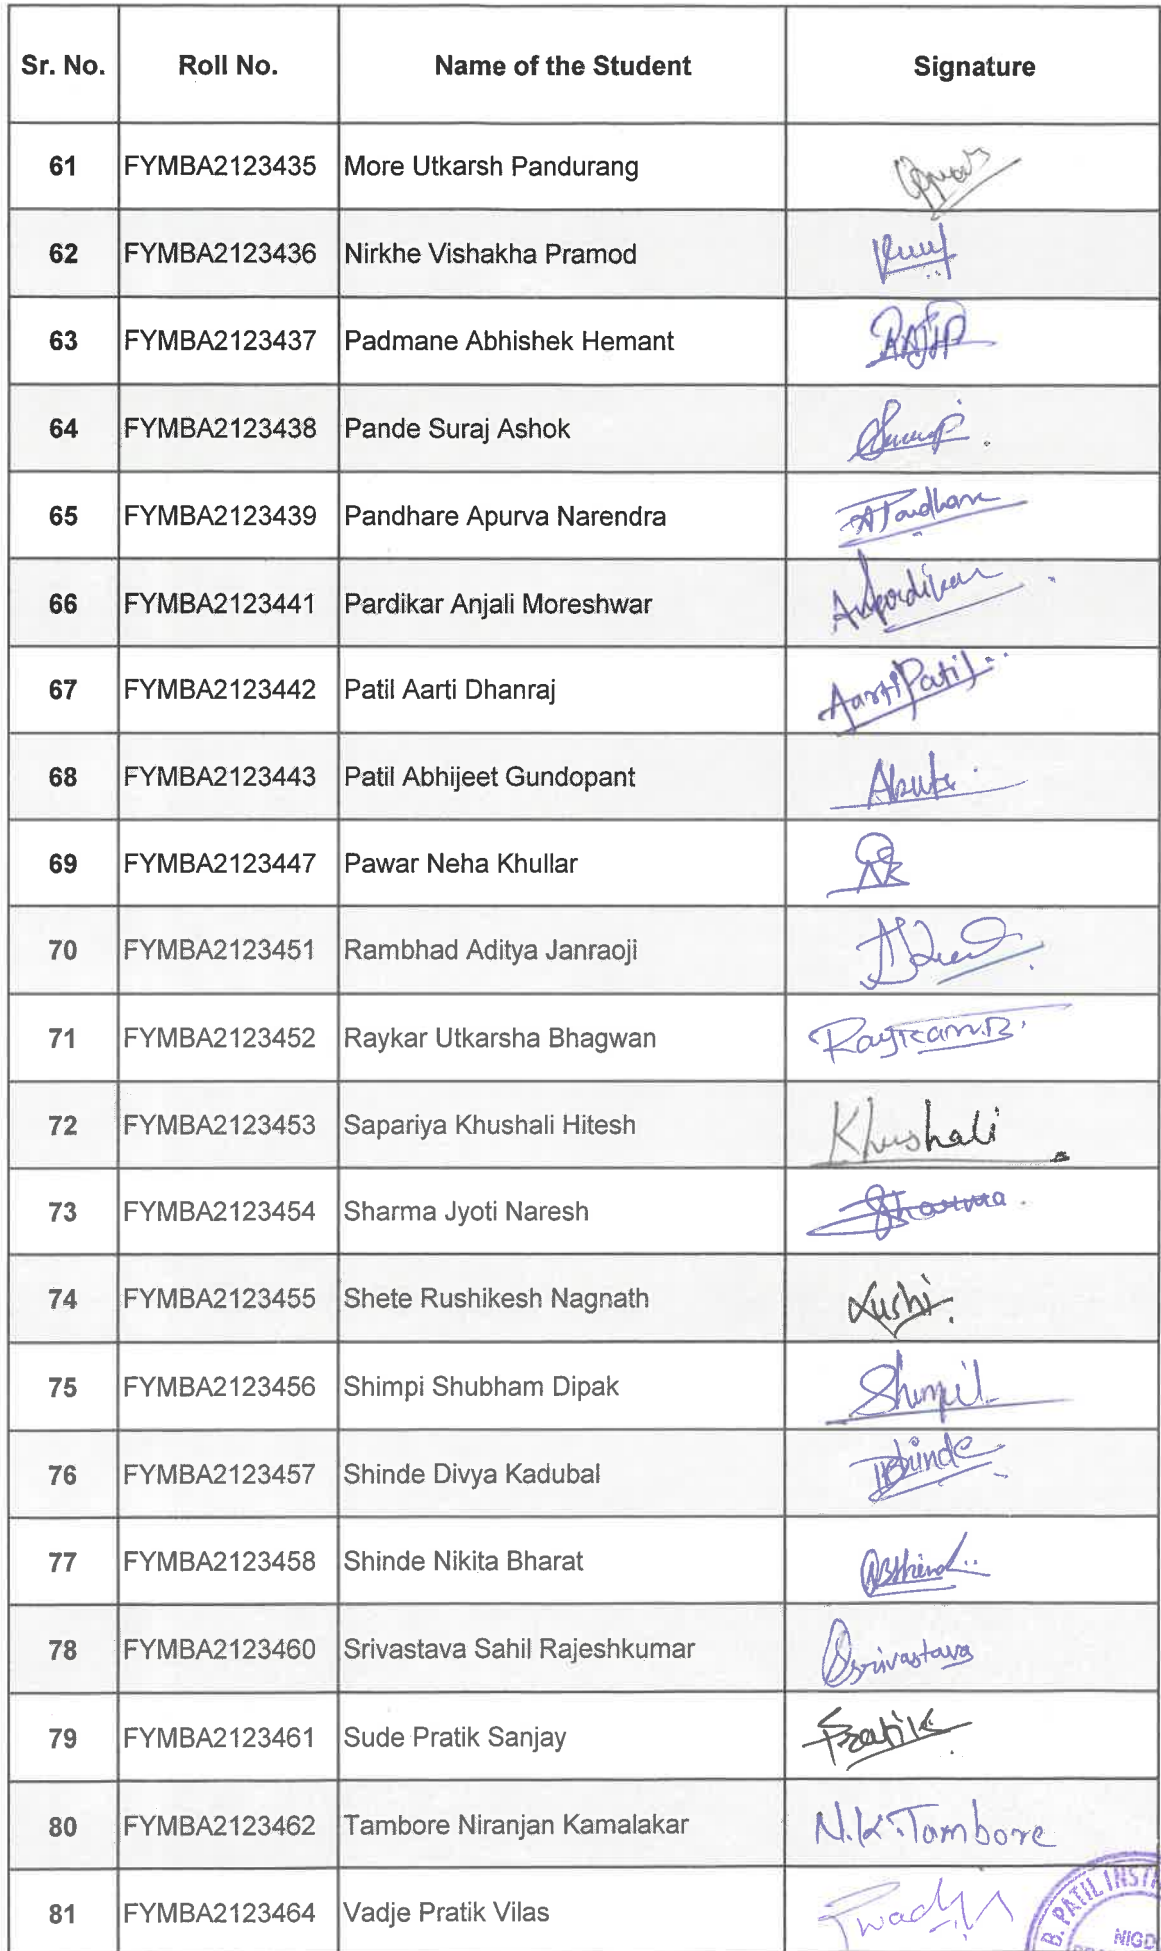 Sr. No. Roll No. Name of the Student Signature
61 FYMBA2123435 More Utkarsh Pandurang
62 FYMBA2123436 Nirkhe Vishakha Pramod
63 FYMBA2123437 Padmane Abhishek Hemant
64 FYMBA2123438 Pande Suraj Ashok
65 FYMBA2123439 Pandhare Apurva Narendra
66 FYMBA2123441 Pardikar Anjali Moreshwar
67 FYMBA2123442 Patil Aarti Dhanraj AartiPatil
68 FYMBA2123443 Patil Abhijeet Gundopant
69 FYMBA2123447 Pawar Neha Khullar
70 FYMBA2123451 Rambhad Aditya Janraoji
71 FYMBA2123452 Raykar Utkarsha Bhagwan
72 FYMBA2123453 Sapariya Khushali Hitesh Khushali
73 FYMBA2123454 Sharma Jyoti Naresh Sharma
74 FYMBA2123455 Shete Rushikesh Nagnath
75 FYMBA2123456 Shimpi Shubham Dipak
76 FYMBA2123457 Shinde Divya Kadubal
77 FYMBA2123458 Shinde Nikita Bharat
78 FYMBA2123460 Srivastava Sahil Rajeshkumar Srivastava
79 FYMBA2123461 Sude Pratik Sanjay Pratik
80 FYMBA2123462 Tambore Niranjan Kamalakar N.K.Tambore
81 FYMBA2123464 Vadje Pratik Vilas
B. PATIL INST
NIGD